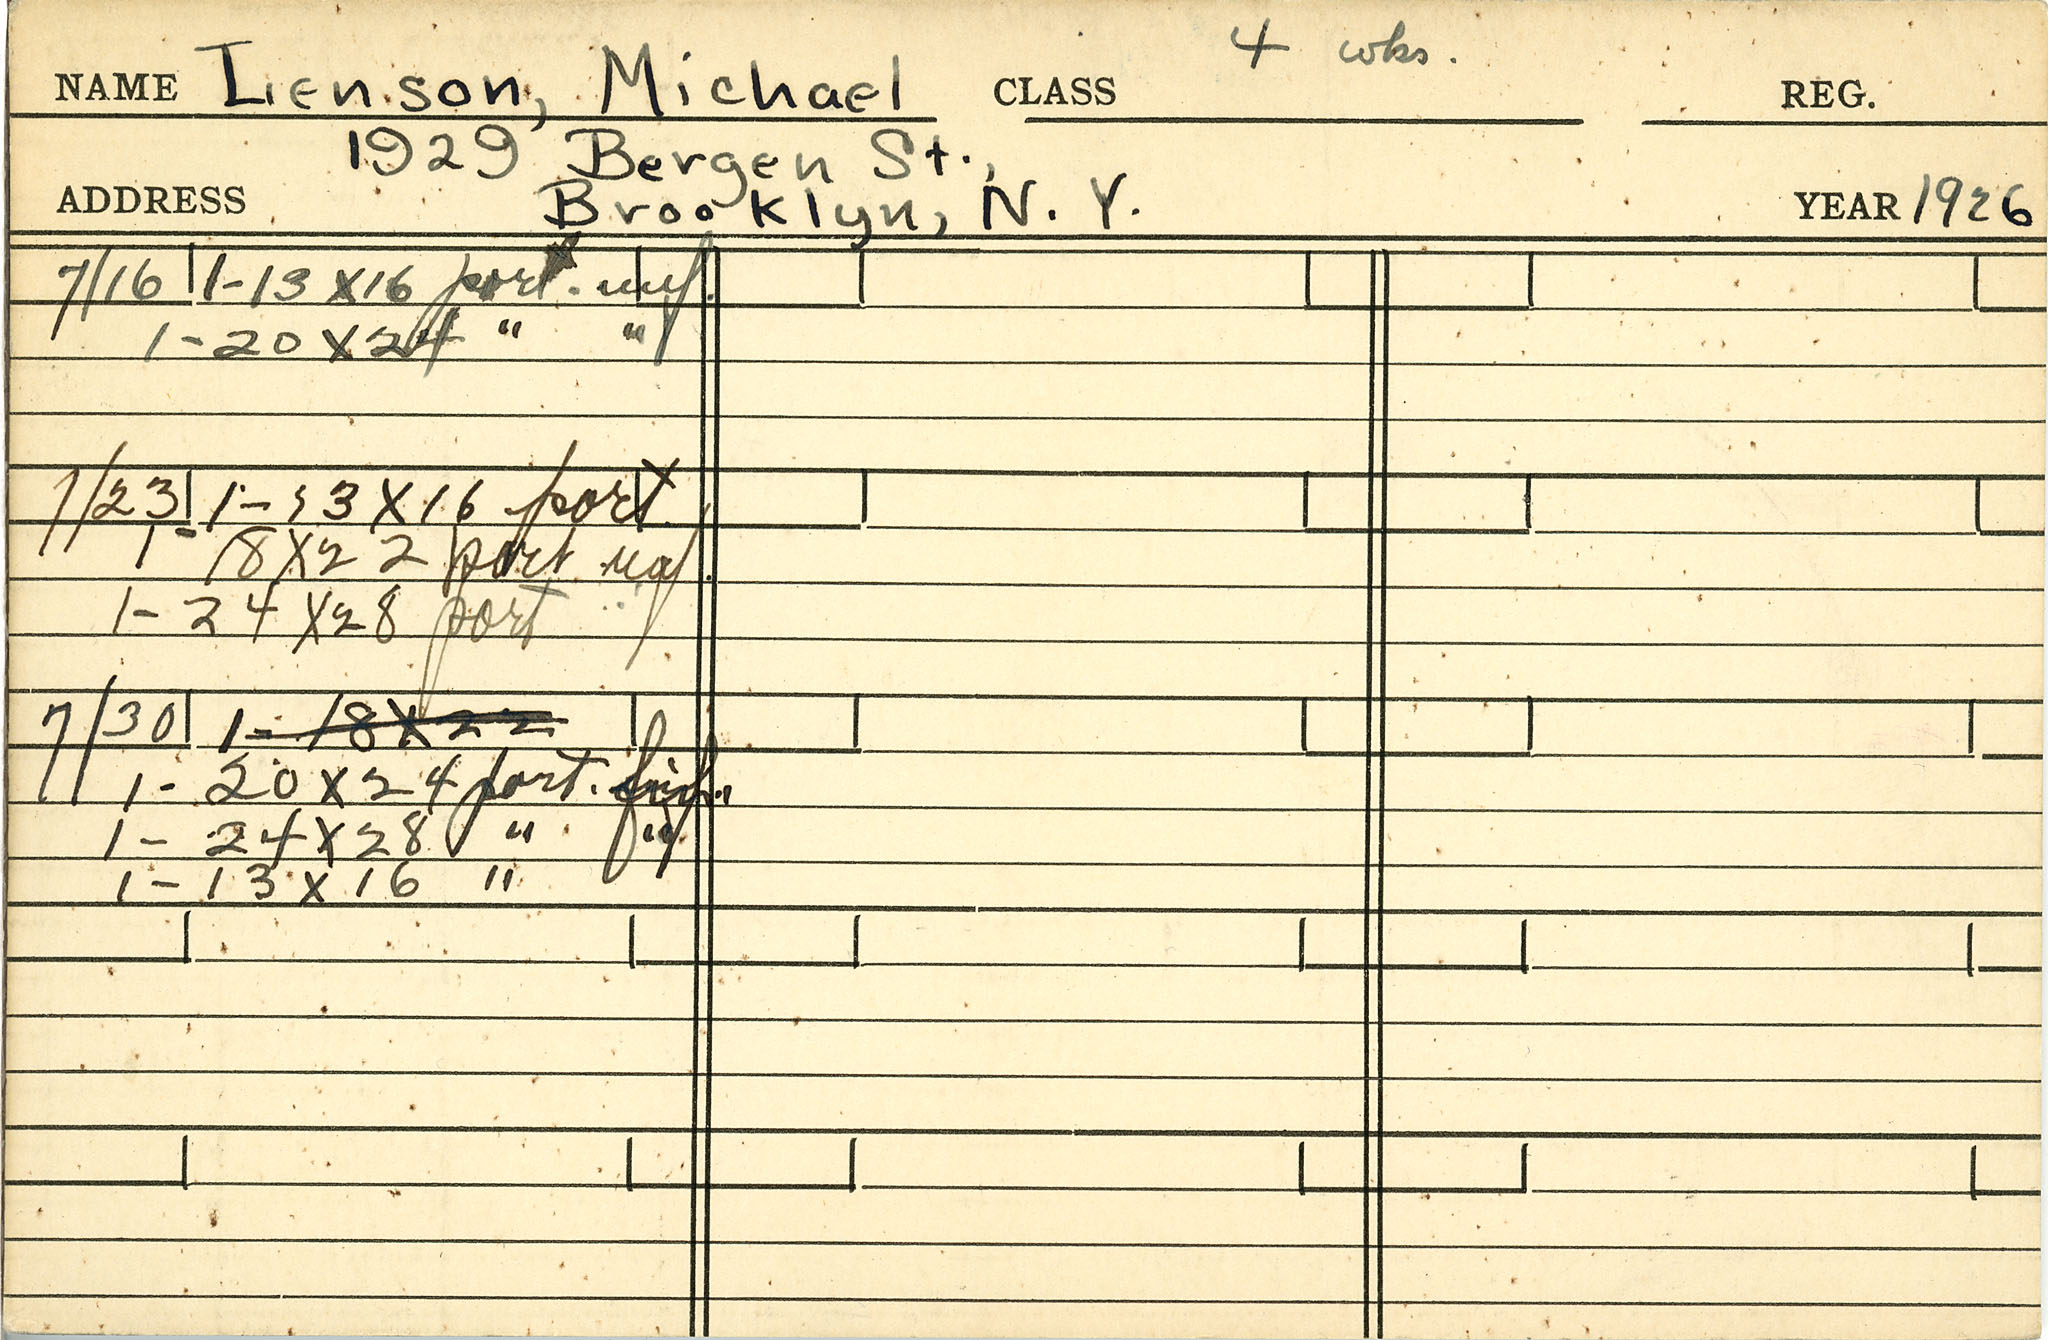 NAME Lenson, Michael CLASS 4 wks. REG.
1929 Bergen St.,
ADDRESS Brooklyn, N. Y. YEAR 1926
7/16 1-13 X16 port.
1-20 X 24 " "
7/23 1-13 X16 port
1- 18X22 port
1- 24 X28 port
7/30 1- 18X22
1- 20 X 24 port.
1- 24X28 " "
1-13 X 16 "